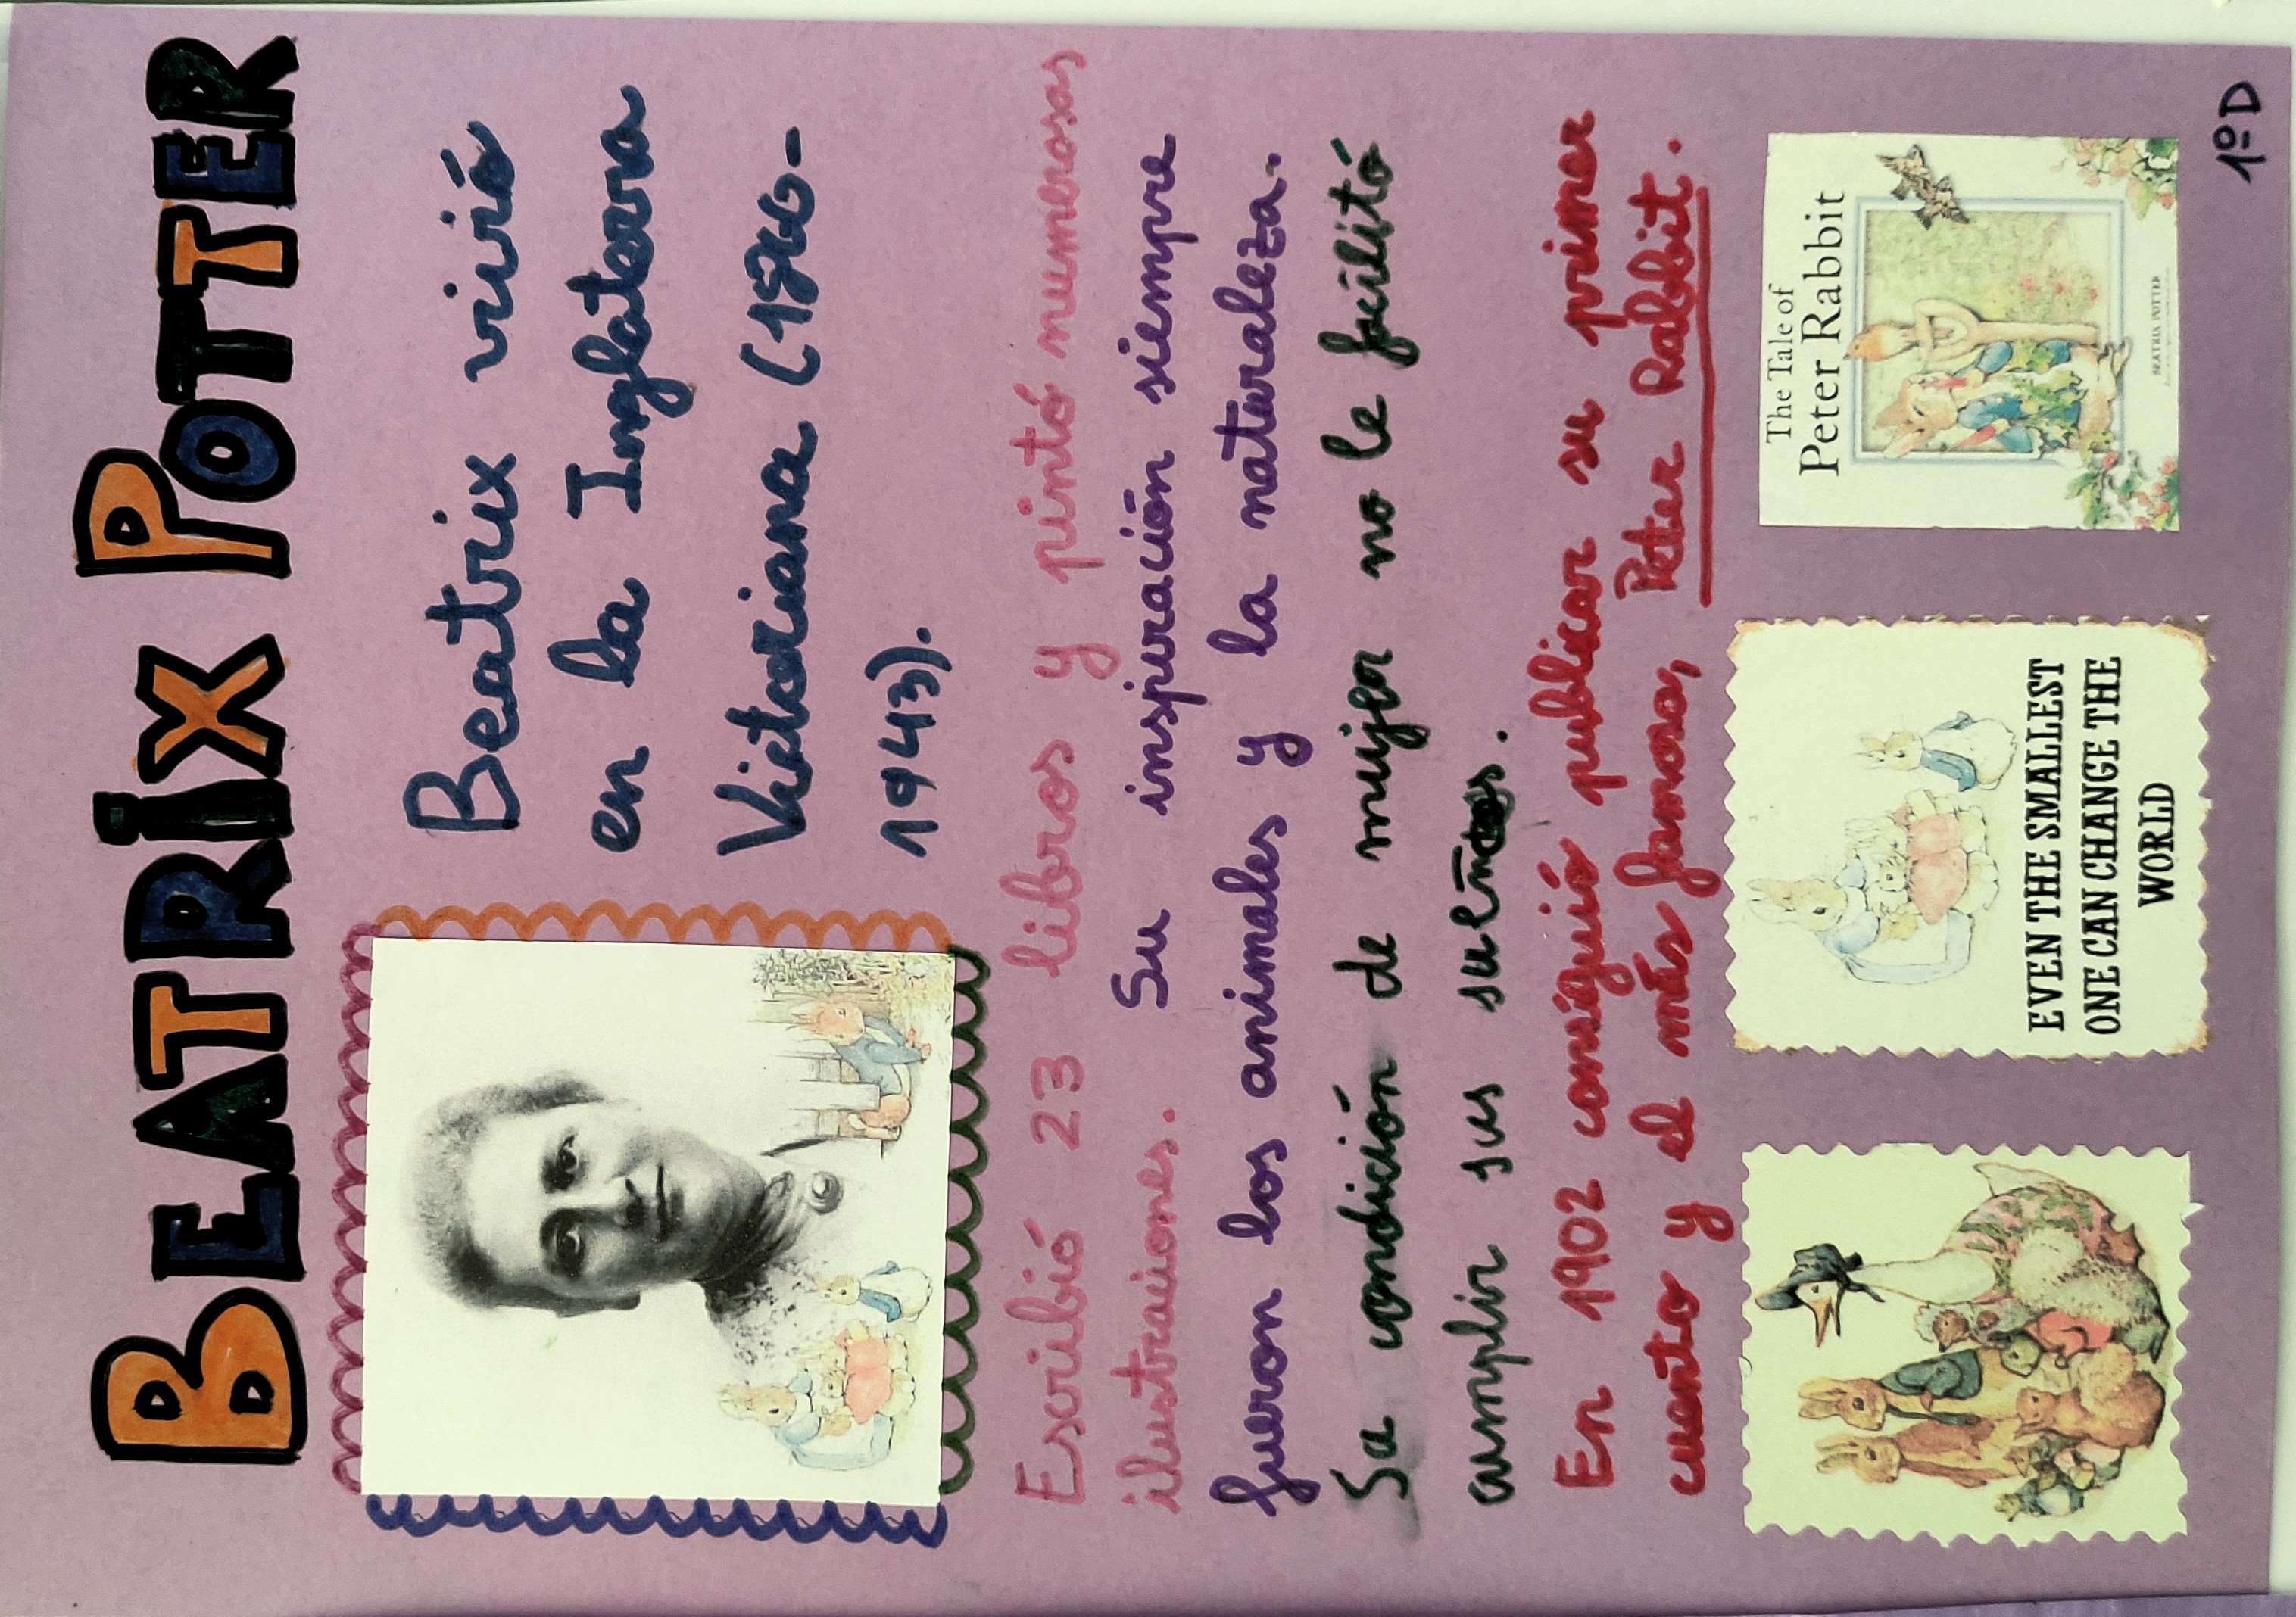 BEATRIX POTTER
Beatrix vivió
en la Inglaterra
Victoriana (1866-
1943).
Escribió 23 libros y pintó numerosas
ilustraciones. Su inspiración siempre
fueron los animales y la naturaleza.
Su condición de mujer no le facilitó
cumplir sus sueños.
En 1902 consiguió publicar su primer
cuento y el más famoso, Peter Rabbit.
EVEN THE SMALLEST
ONE CAN CHANGE THE
WORLD
The Tale of
Peter Rabbit
BEATRIX POTTER
1ºD